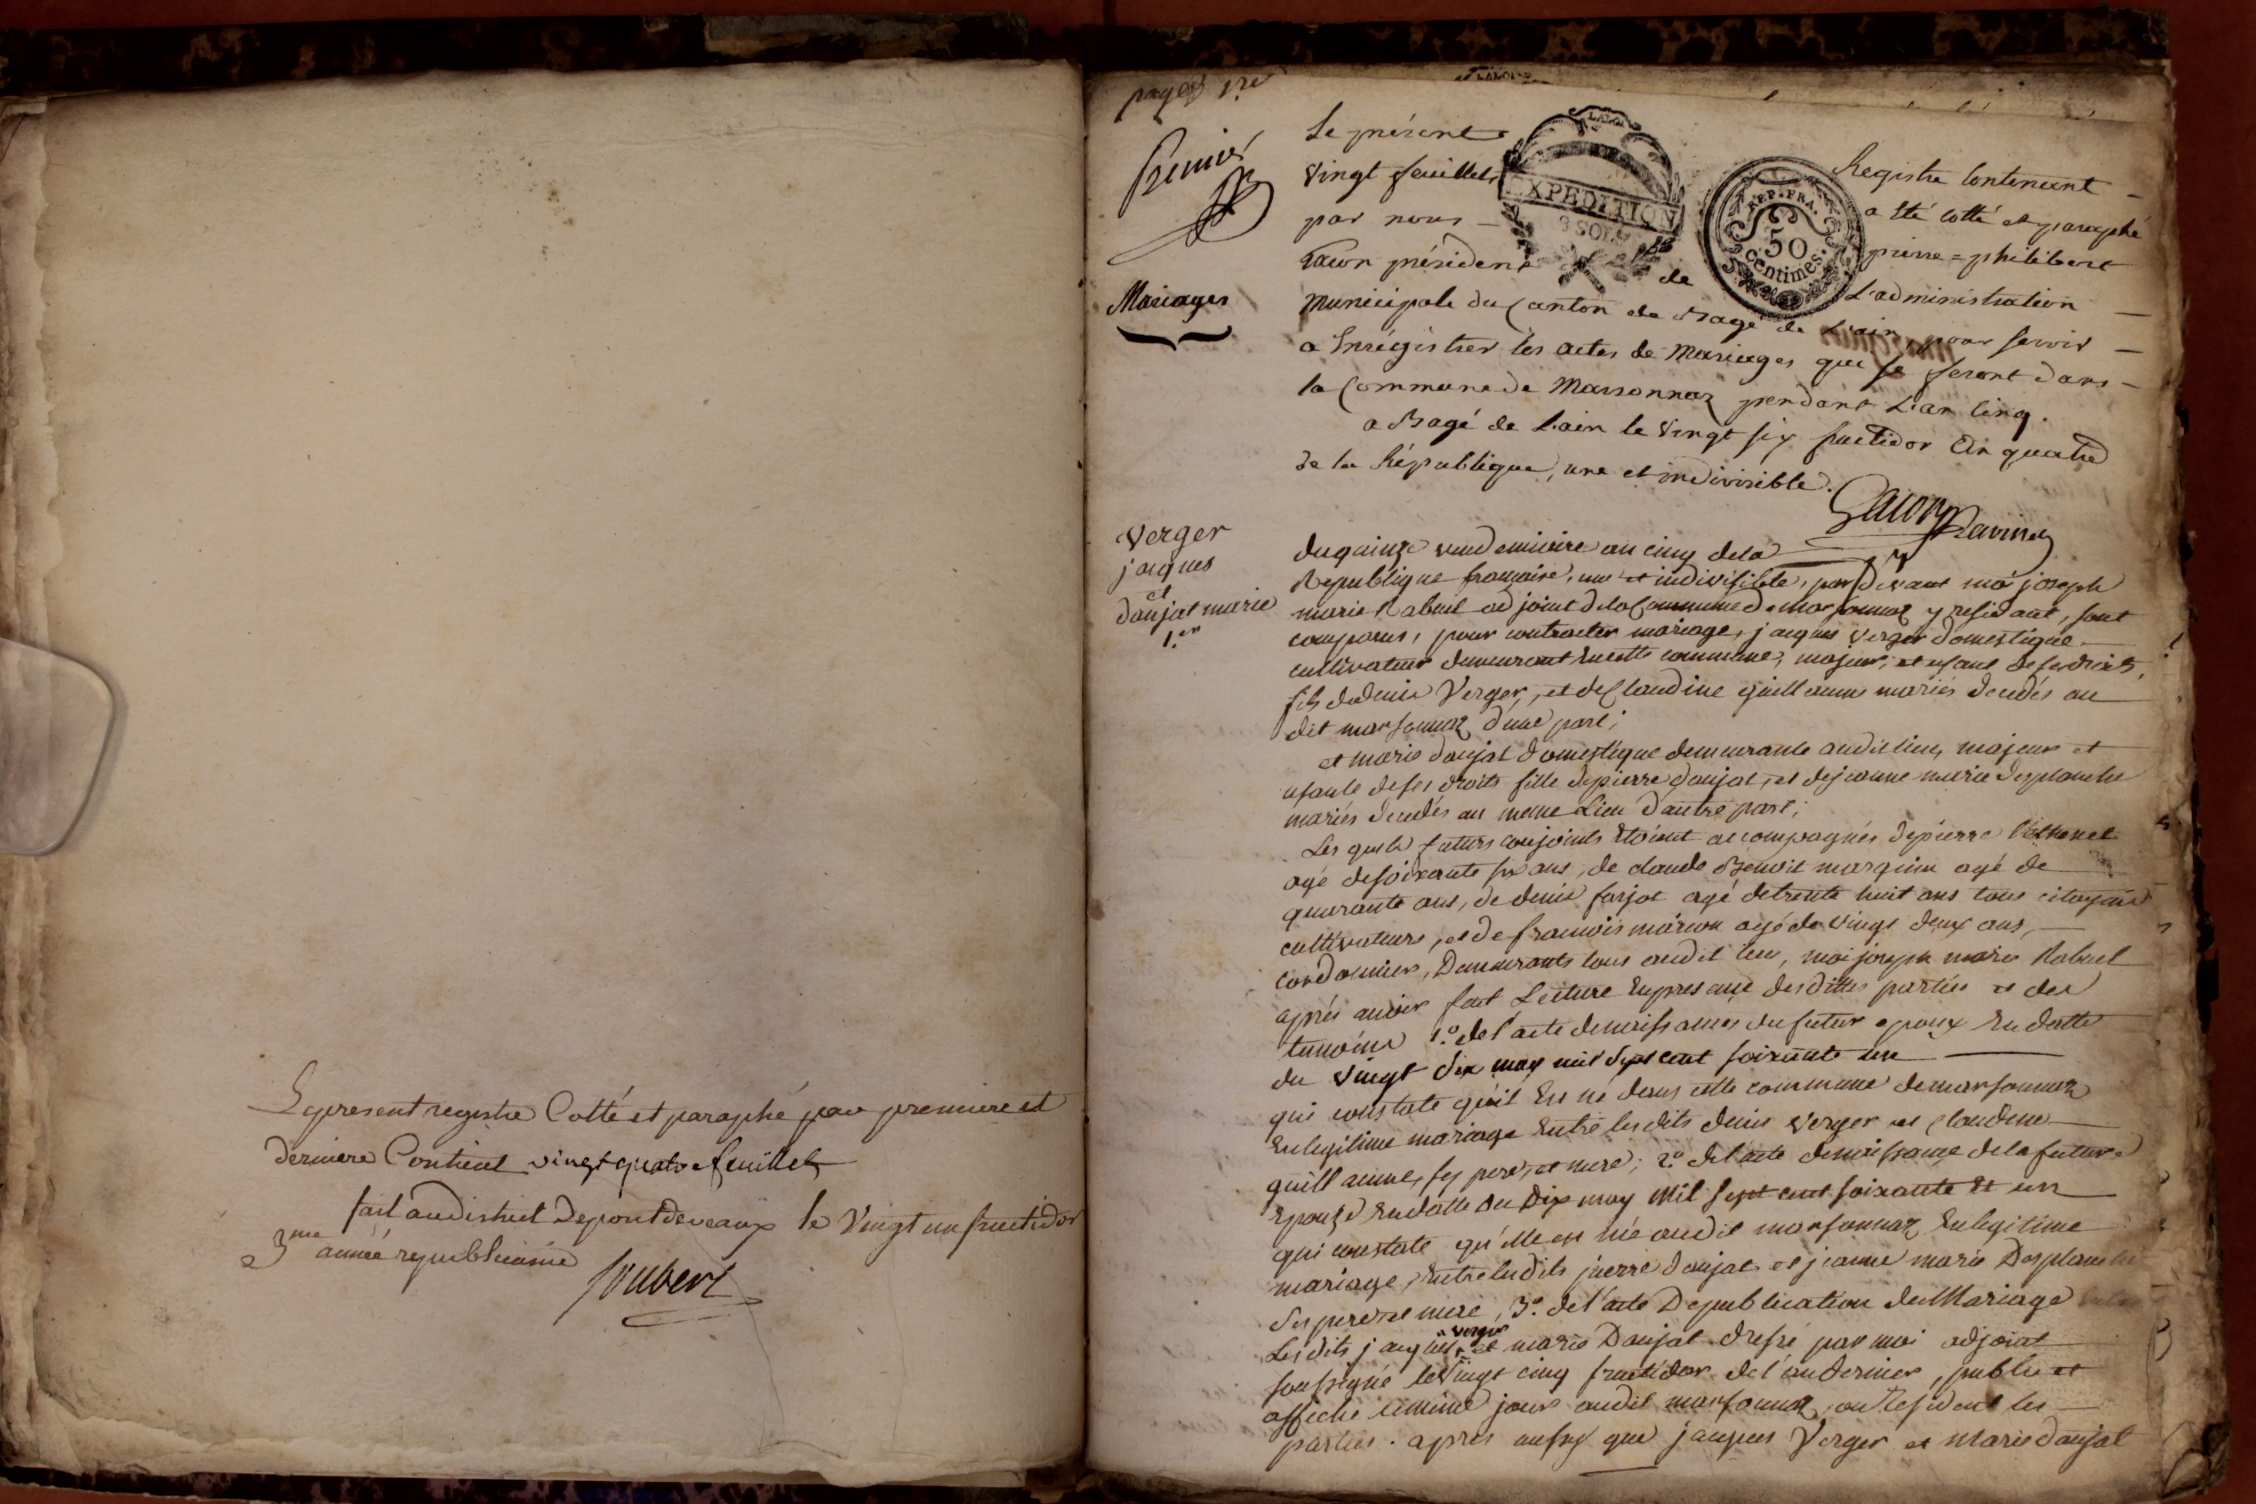 Le present registre Cotté et paraphé par premiere et
derniere Contient vingt quatre feuillets
fait au district de pont de vaux le Vingt un fructidor
3me année republicaine
Joubert
page 1re
Premier
Mariages
Le présent Registre Contenant
Vingt feuillets a été cotté et paraphé
par nous pierre=philibert
président de L'administration
Municipale du Canton de Bagé de L'ain, pour servir
a Enrégistrer les actes de Mariages qui se feront dans
la Commune de Marsonnaz pendant L'an cinq.
a Bagé de L'ain le Vingt six fructidor An quatre
de la République, une et indivisible.
EXPEDITION
3 SOLS
REP. FRA.
50
centimes.
Verger
jacques
et
doujat marie
1.er
du quinze vendemiaire an cinq de la
Republique française, une et indivisible, par devant moi joseph
marie Rabuel adjoint de la Commune de marsonnaz y residant, sont
comparus, pour contracter mariage, jacques Verger domestique
cultivateur demeurant en cette commune, majeur, et usant de ses droits,
fils de denis Verger, et de Claudine guillaume mariés decedés au
dit marsonnaz d'une part;
et marie doujat domestique demeurante audit lieu, majeure et
usante de ses droits fille de pierre doujat, et de jeanne marie desplanche
mariés decedés au meme Lieu d'autre part;
Les quels futurs conjoints étoient accompagnés de pierre
agé de soixante six ans, de claude Benoit marguin agé de
quarante ans, de denis farjot agé de trente huit ans tous citoyens
cultivateurs, et de francois marion agé de vingt deux ans,
cordonnier, Demeurants tous audit lieu, moi joseph marie Rabuel
après avoir fait Lecture En presence des dittes parties et des
temoins 1.º de l'acte de naissance du futur epoux En datte
du vingt dix may mil sept cent soixante un
qui constate qu'il Est né dans cette commune de marsonnaz
En legitime mariage Entre les dits denis Verger et Claudine
guillaume, ses pere et mere; 2.º de l'acte de naissance de la future
Epouze En datte du Dix may Mil sept cent soixante et un
qui constate qu'elle est née au dit marsonnaz En legitime
mariage, Entre les dits pierre doujat et jeanne marie Desplanche
Ses pere et mere, 3.º de l'acte De publication de Mariage
Les dits jacques Verger et marie Doujat dressé par moi adjoint
soussigné le Vingt cinq fructidor de l'an dernier, publié et
affiché le meme jour audit marsonnaz, ou resident les
parties. après aussy que jacques Verger et Marie doujat